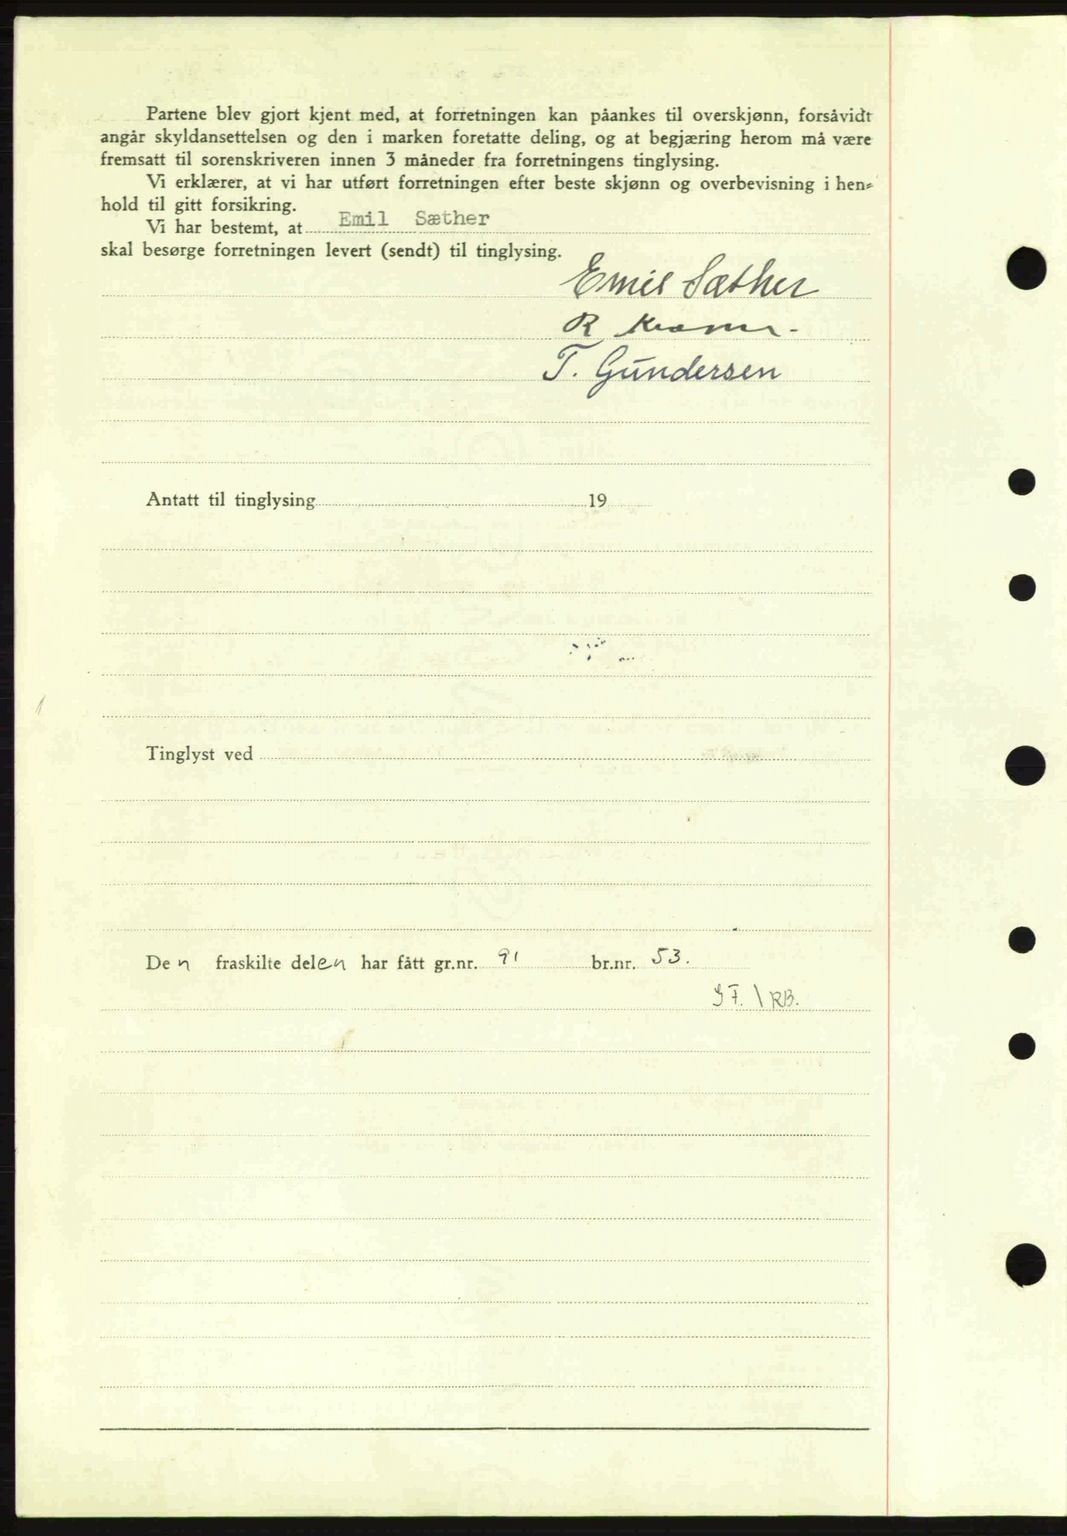 Partene blev gjort kjent med, at forretningen kan påankes til overskjønn, forsåvidt
angår skyldansettelsen og den i marken foretatte deling, og at begjæring herom må være
fremsatt til sorenskriveren innen 3 måneder fra forretningens tinglysing.
Vi erklærer, at vi har utført forretningen efter beste skjønn og overbevisning i hen-
hold til gitt forsikring.
Vi har bestemt, at Emil Sæther
skal besørge forretningen levert (sendt) til tinglysing.
Emil Sæther
R
T. Gundersen
Antatt til tinglysing 19
Tinglyst ved
Den fraskilte delen har fått gr.nr. 91 br.nr. 53.
RB.